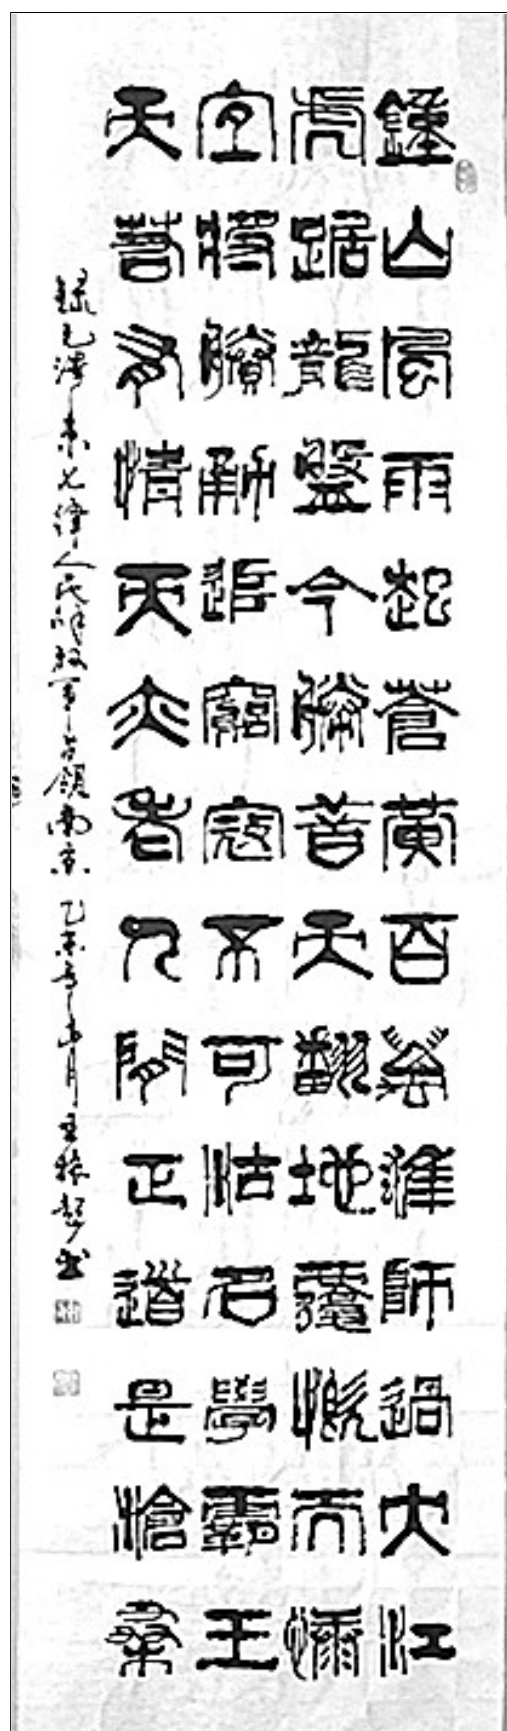 鐘山風雨起蒼黃百萬雄師過大江
虎踞龍盤今勝昔天翻地覆慨而慷
宜將賸勇追窮寇不可沽名學霸王
天若有情天亦老人間正道是滄桑
錄毛澤東七律人民解放軍占領南京 乙未年 月王 書